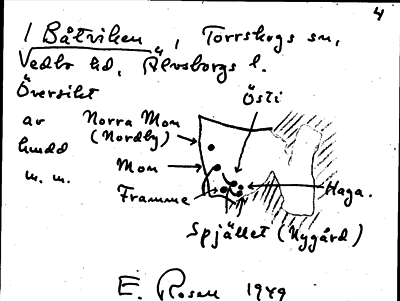 4
1 Båtviken, Torrskogs sn,
Vedbo hd, Älvsborgs l.
Översikt
av
hudd
m. m.
Östi
Norra Mon
(Nordby)
Mon
Framme
Haga.
Spjället (Nygård)
E. Rosen 1949